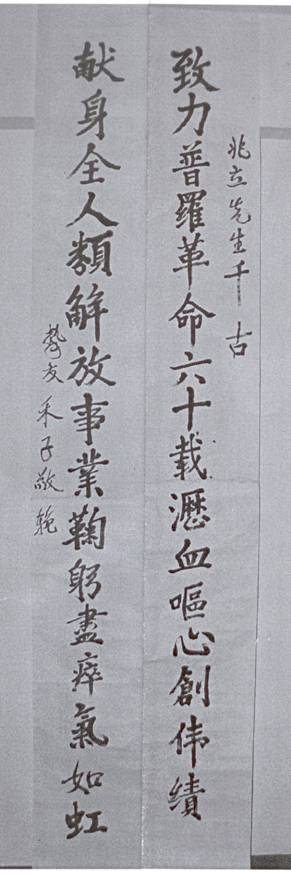 兆立先生千古
致力普羅革命六十载瀝血嘔心創伟绩
献身全人類解放事業鞠躬盡瘁氣如虹
摯友禾子敬輓